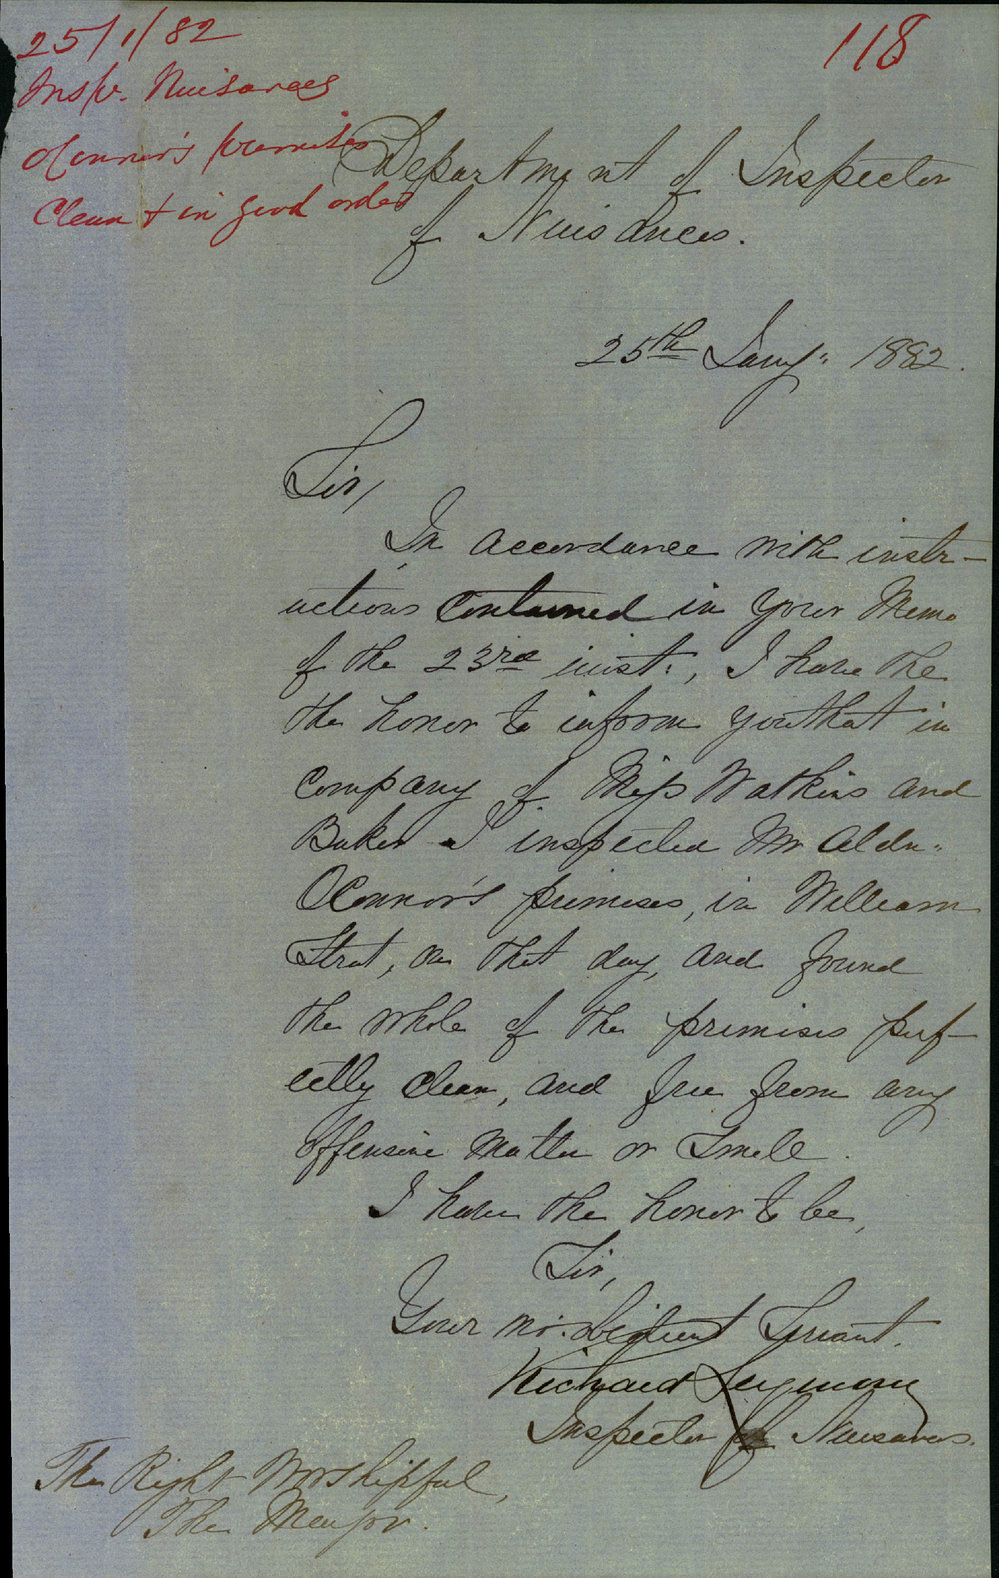 25/1/82
Inspr. Nuisances
O'Connor's premises
Clean & in good order
118
Department of Inspector
of Nuisances.
25th Jany: 1882.
Sir,
In accordance with instr-
uctions contained in your Memo
of the 23rd inst:, I have the
the honor to inform you that in
company of Messs Watkins and
Baker I inspected Mr Aldn:
OConnor's premises, in William
Street, on that day, and found
the whole of the premises perf-
ectly clean, and free from any
offensive matter or smell.
I have the honor to be,
Sir,
Your mo. obedient Servant.
Richard Seymour
Inspector of Nuisances.
The Right Worshipful,
The Mayor.